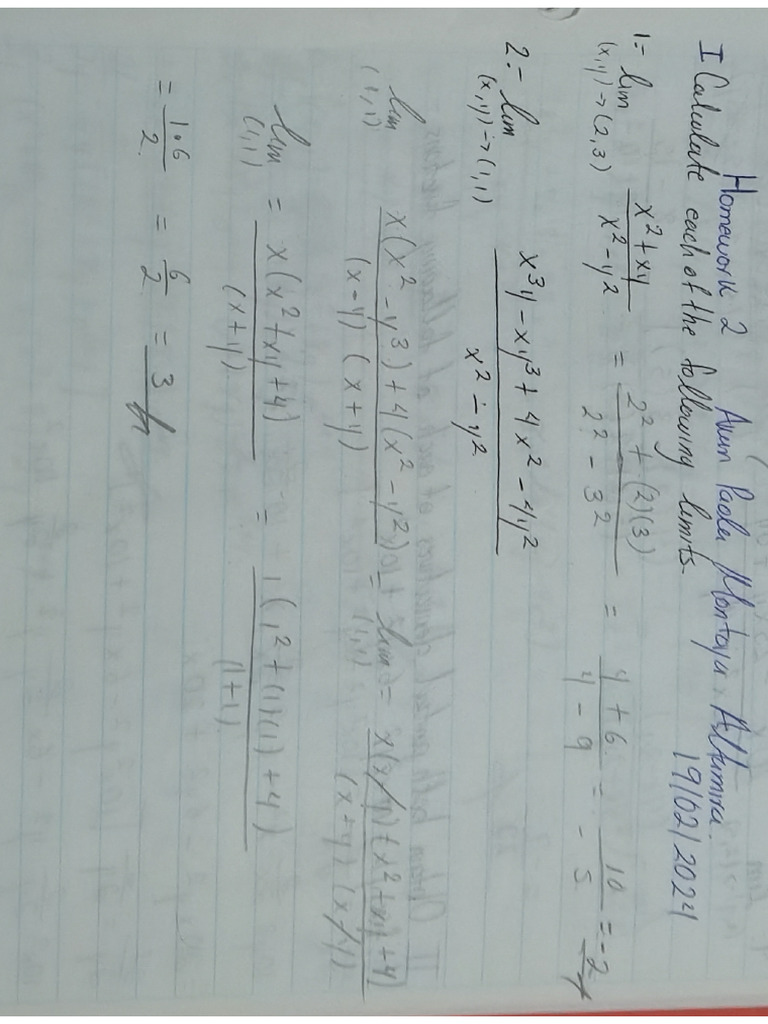 Homework 2 Paola Montaya
19/02/2024
I Calculate each of the following limits.
1.- lim (x,y)→(2,3) x²+xy / x²-y² = 2² + (2)(3) / 2² - 3² = 4+6 / 4-9 = 10 / -5 = -2
2.- lim (x,y)→(1,1) x³y - xy³ + 4x² - 4y² / x² - y²
lim (1,1) x(x² - y³) + 4(x² - y²) / (x-y) (x+y) = lim (1,1) = x(x-y) (x²+xy+4) / (x+y) (x-y)
lim (1,1) = x(x²+xy+4) / (x+y) = 1(1²+(1)(1)+4) / (1+1)
= 1·6 / 2 = 6 / 2 = 3